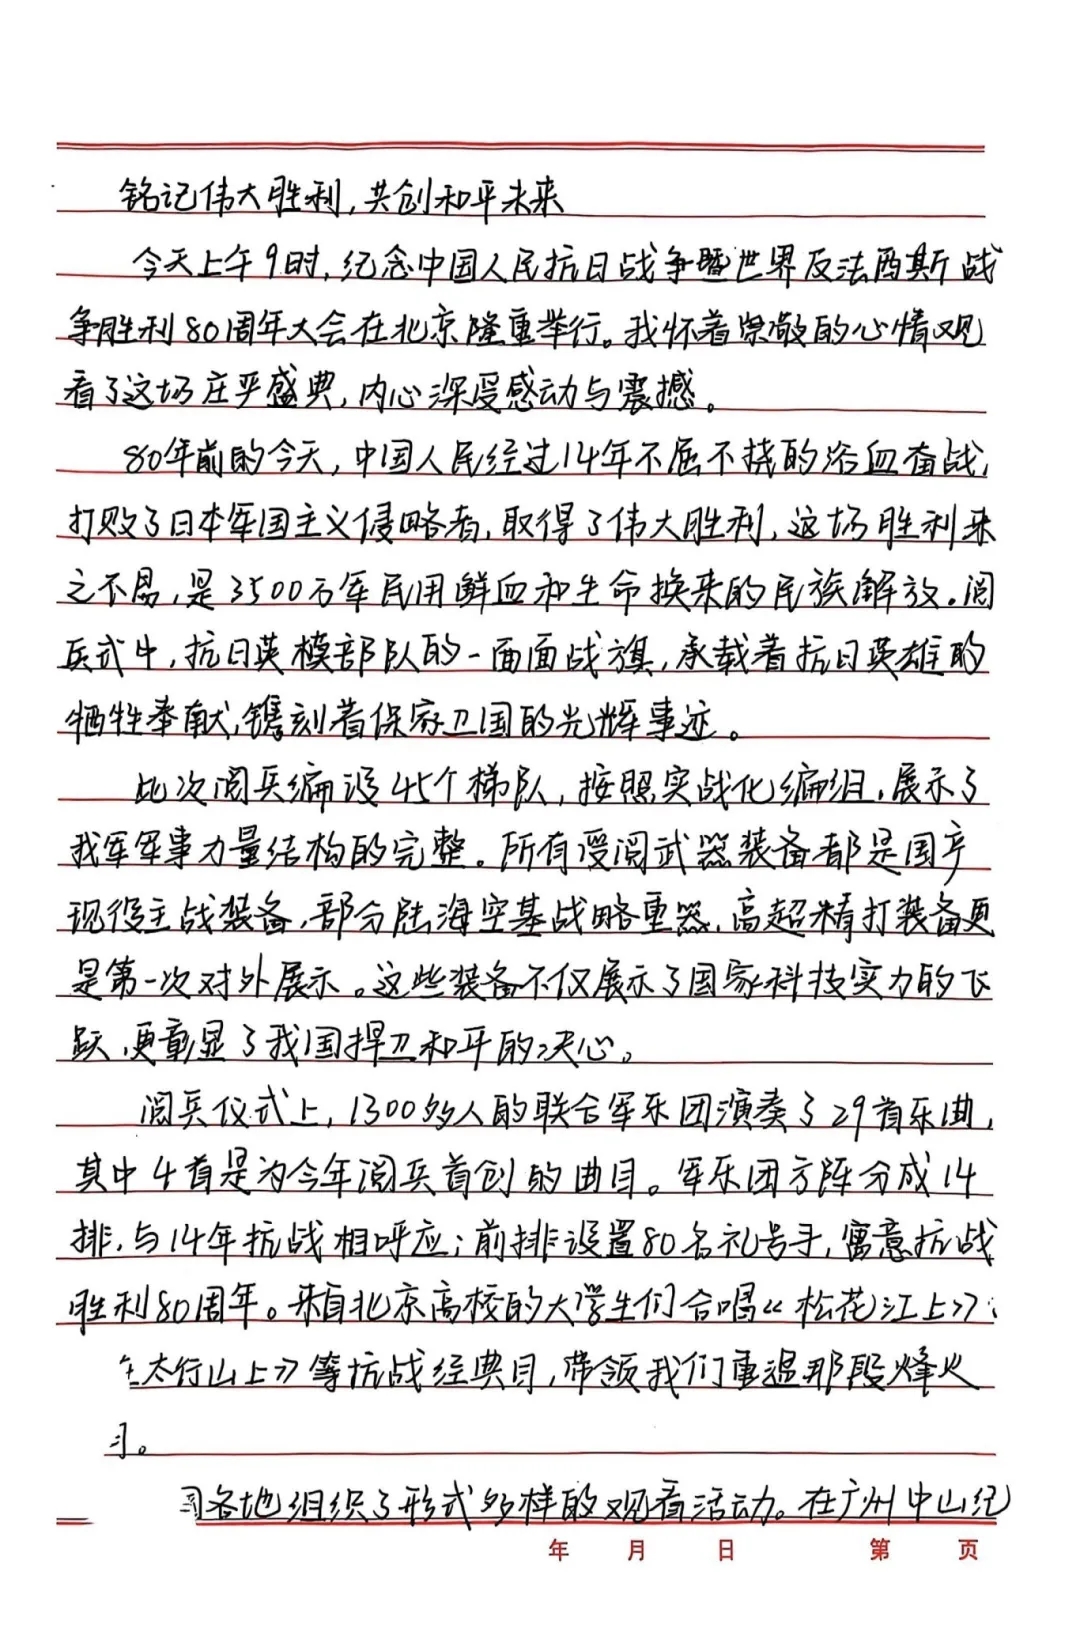 铭记伟大胜利,共创和平未来
今天上午9时,纪念中国人民抗日战争暨世界反法西斯战
争胜利80周年大会在北京隆重举行。我怀着崇敬的心情观
看了这场庄严盛典,内心深受感动与震撼。
80年前的今天,中国人民经过14年不屈不挠的浴血奋战,
打败了日本军国主义侵略者,取得了伟大胜利,这场胜利来
之不易,是3500万军民用鲜血和生命换来的民族解放。阅
兵式中,抗日英模部队的一面面战旗,承载着抗日英雄的
牺牲奉献,镌刻着保家卫国的光辉事迹。
此次阅兵编设45个梯队,按照实战化编组,展示了
我军军事力量结构的完整。所有受阅武器装备都是国产
现役主战装备,部分陆海空基战略重器,高超精打装备更
是第一次对外展示。这些装备不仅展示了国家科技实力的飞
跃,更彰显了我国捍卫和平的决心。
阅兵仪式上,1300多人的联合军乐团演奏了29首乐曲,
其中4首是为今年阅兵首创的曲目。军乐团方阵分成14
排,与14年抗战相呼应;前排设置80名礼号手,寓意抗战
胜利80周年。来自北京高校的大学生们合唱《松花江上》
太行山上》等抗战经典目,带领我们重温那段烽火
。
国各地组织了形式多样的观看活动。在广州中山纪
年 月 日 第 页